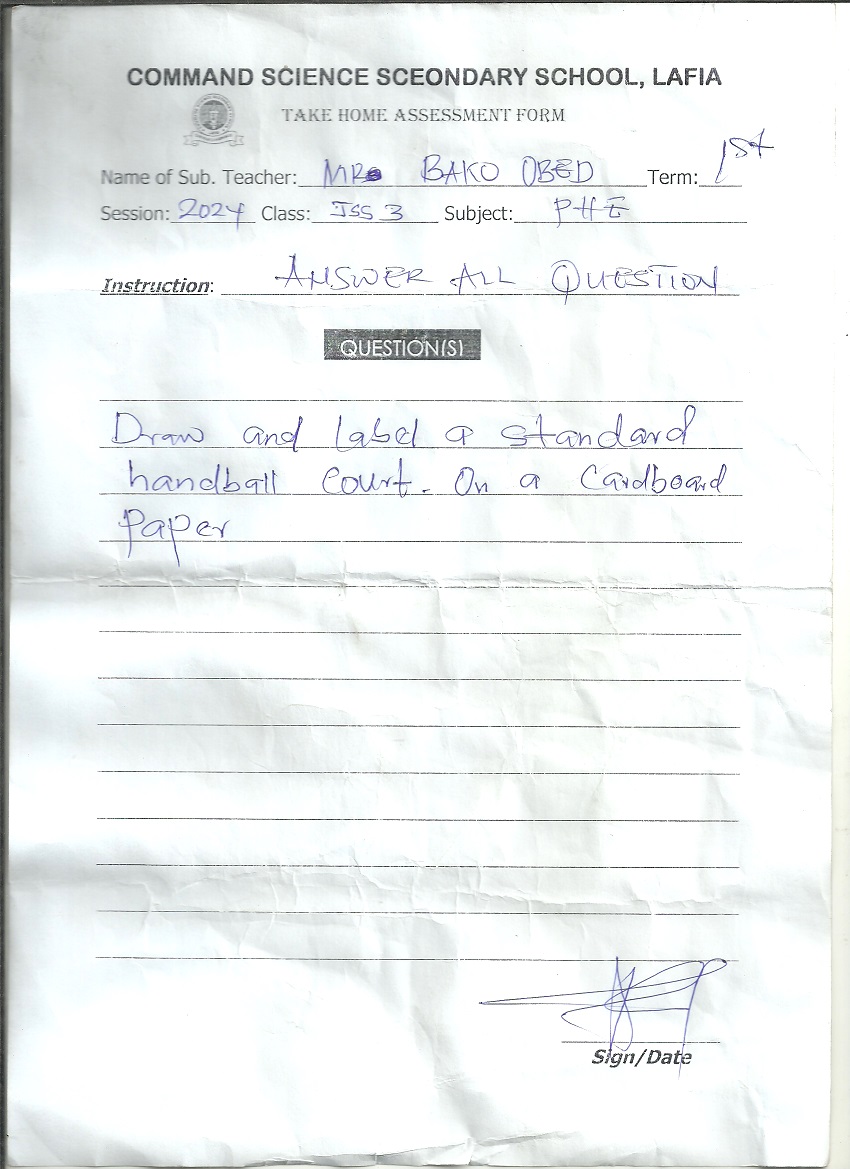 COMMAND SCIENCE SCEONDARY SCHOOL, LAFIA
TAKE HOME ASSESSMENT FORM
Name of Sub. Teacher: MR BAKO OBED Term: 1st
Session: 2024 Class: JSS 3 Subject: PHE
Instruction: ANSWER ALL QUESTION
QUESTION(S)
Draw and label a standard
handball court. On a Cardboard
Paper
Sign/Date